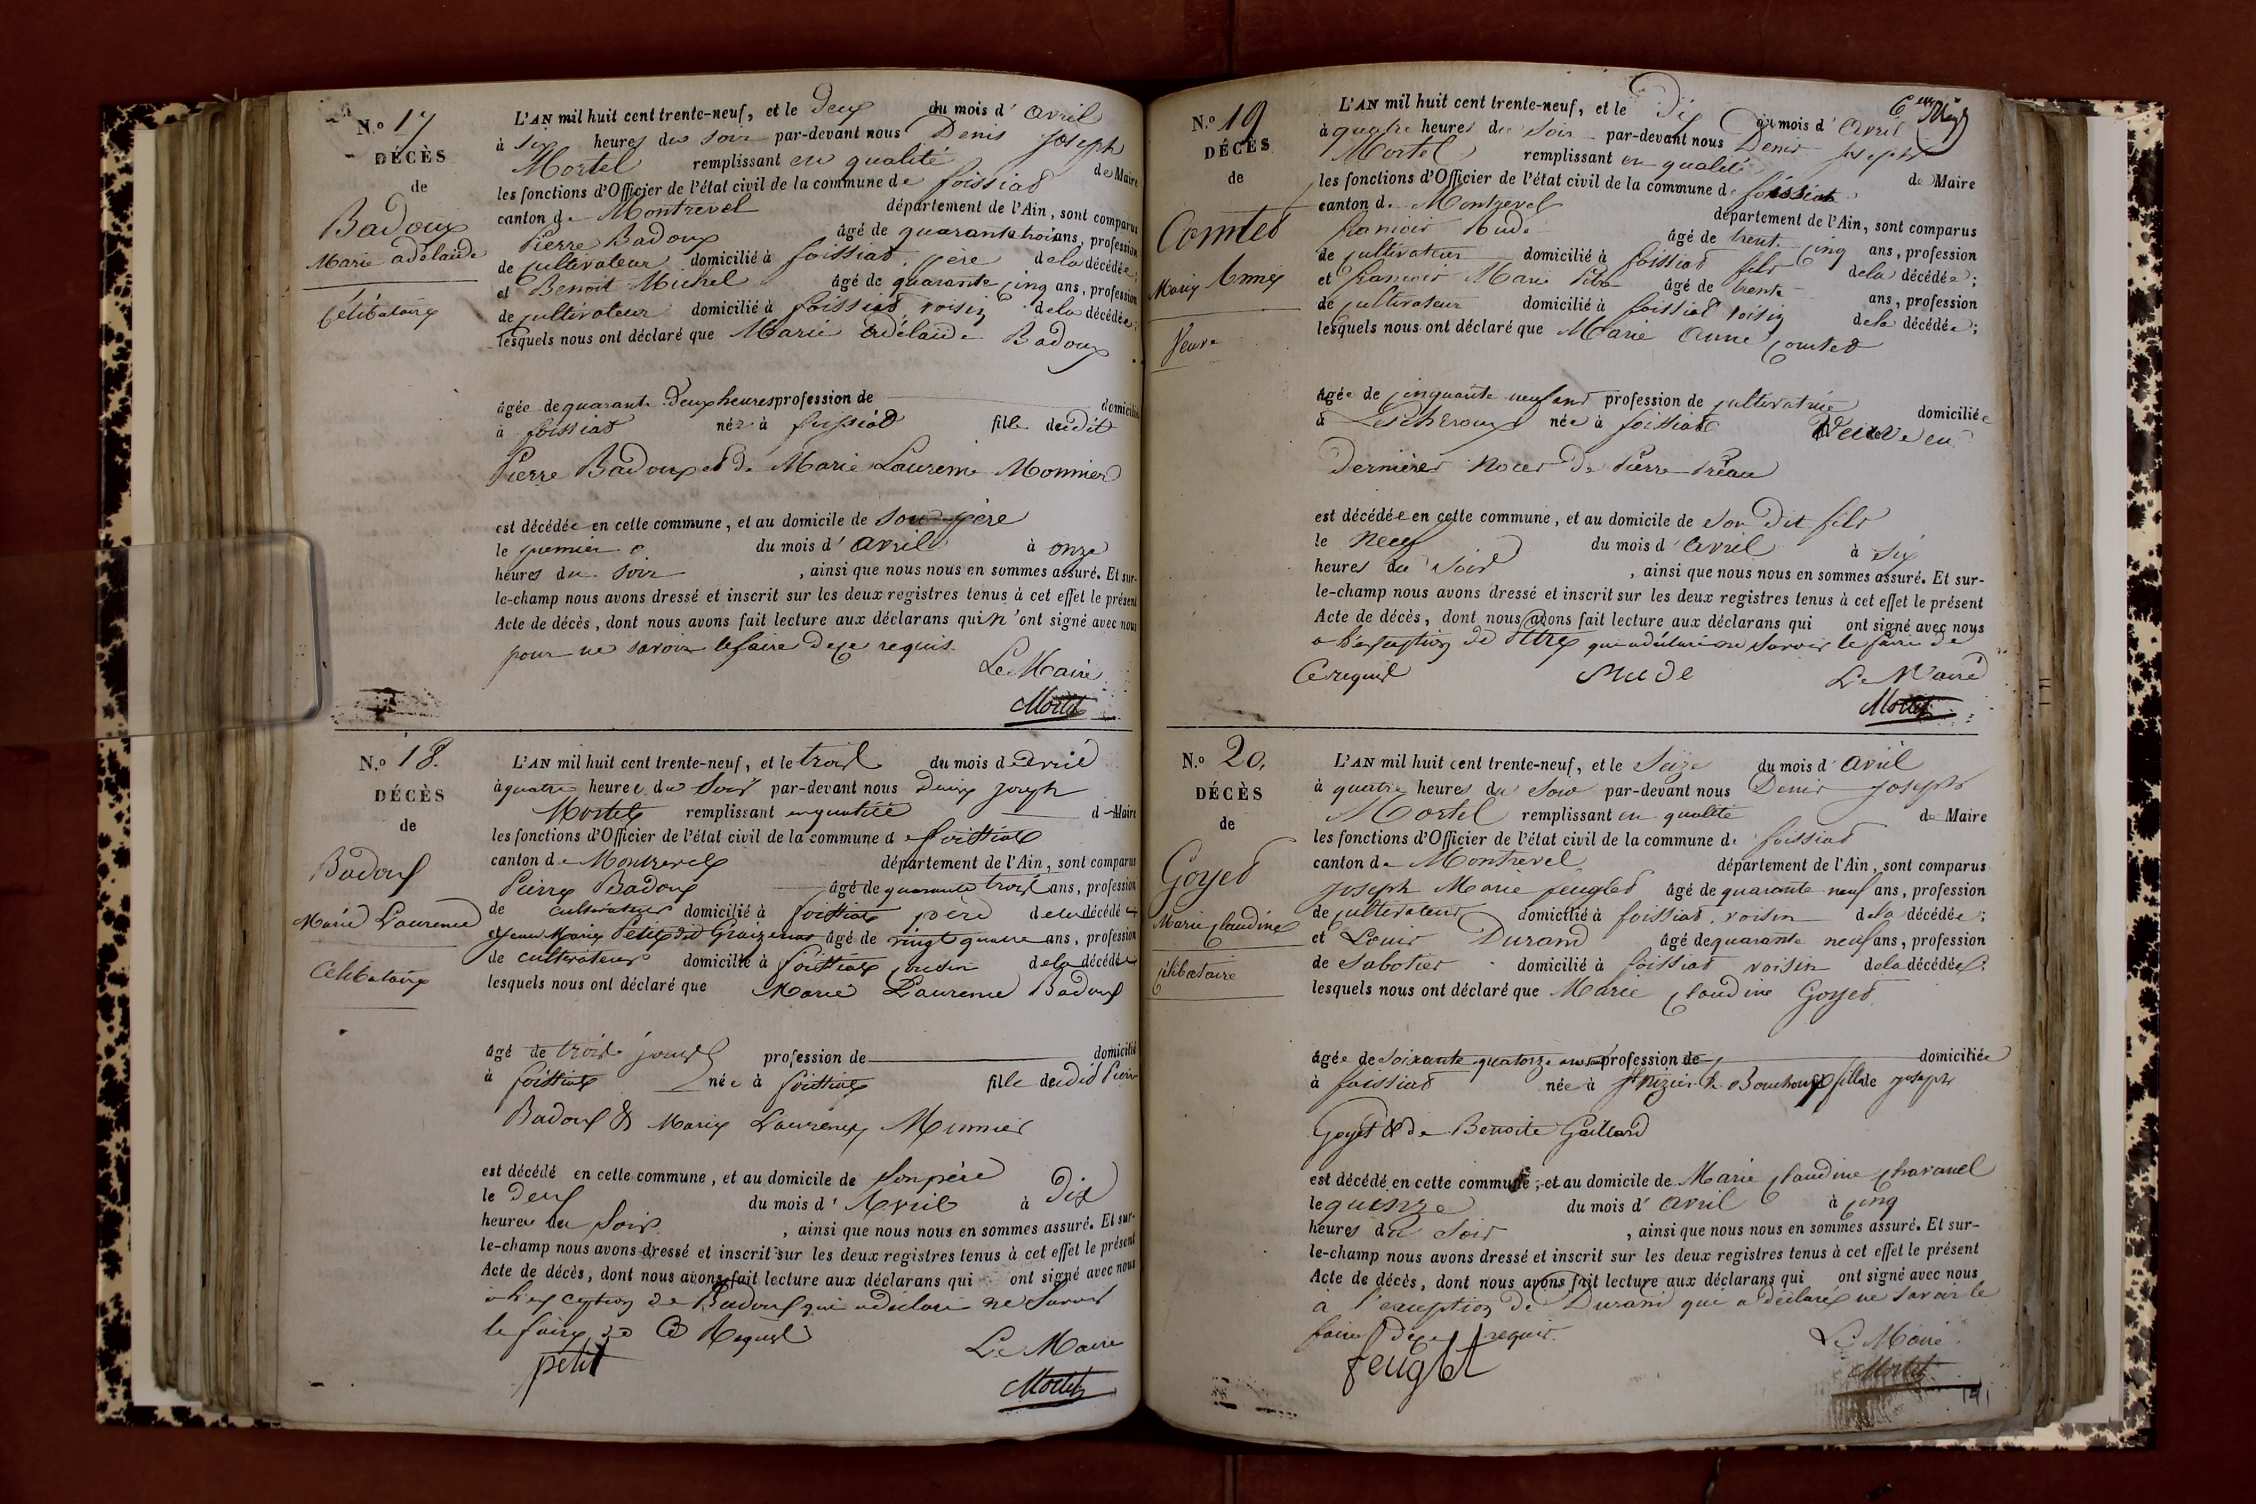 N.° 17
DÉCÈS
de
Badoux
Marie adélaïde
Célibataire
L'AN mil huit cent trente-neuf, et le deux du mois d'avril
à six heures du soir par-devant nous Denis Joseph
Mortel remplissant en qualité de Maire
les fonctions d'Officier de l'état civil de la commune de foissiat
canton de Montrevel département de l'Ain, sont comparus
Pierre Badoux âgé de quarante trois ans, profession
de cultivateur domicilié à foissiat, père de la décédée;
et Benoit Michel âgé de quarante cinq ans, profession
de cultivateur domicilié à foissiat, voisin de la décédée;
lesquels nous ont déclaré que Marie adélaïde Badoux
âgée de quarante deux heures profession de domiciliée
à foissiat née à foissiat fille dudit
Pierre Badoux et de Marie Laurence Monnier
est décédée en cette commune, et au domicile de son père
le premier du mois d'avril à onze
heures du soir, ainsi que nous nous en sommes assuré. Et sur-
le-champ nous avons dressé et inscrit sur les deux registres tenus à cet effet le présent
Acte de décès, dont nous avons fait lecture aux déclarans qui n'ont signé avec nous
pour ne savoir le faire de ce requis.
Le Maire
Mortel
N.° 18.
DÉCÈS
de
Badoux
Marie Laurence
Célibataire
L'AN mil huit cent trente-neuf, et le trois du mois d'avril
à quatre heures du soir par-devant nous Denis Joseph
Mortel remplissant en qualité de Maire
les fonctions d'Officier de l'état civil de la commune de foissiat
canton de Montrevel département de l'Ain, sont comparus
Pierre Badoux âgé de quarante trois ans, profession
de cultivateur domicilié à foissiat père de la décédée
et Jean Marie Petit dit âgé de vingt quatre ans, profession
de cultivateur domicilié à foissiat cousin de la décédée
lesquels nous ont déclaré que Marie Laurence Badoux
âgé de trois jours profession de domicilié
à foissiat née à foissiat fille dudit Pierre
Badoux & Marie Laurence Monnier
est décédé en cette commune, et au domicile de son père
le deux du mois d'Avril à dix
heures du soir, ainsi que nous nous en sommes assuré. Et sur-
le-champ nous avons dressé et inscrit sur les deux registres tenus à cet effet le présent
Acte de décès, dont nous avons fait lecture aux déclarans qui ont signé avec nous
à l'exception de Badoux qui a déclaré ne savoir
le faire de ce Requis
Le Maire
petit
Mortel
N.° 19
DÉCÈS
de
Comtet
Marie Anne
Veuve
L'AN mil huit cent trente-neuf, et le dix du mois d'avril
à quatre heures du soir par-devant nous Denis Joseph
Mortel remplissant en qualité de Maire
les fonctions d'Officier de l'état civil de la commune de foissiat
canton de Montrevel département de l'Ain, sont comparus
francois Nude âgé de trente cinq ans, profession
de cultivateur domicilié à foissiat fils de la décédée;
et francois Marie âgé de trente ans, profession
de cultivateur domicilié à foissiat voisin de la décédée;
lesquels nous ont déclaré que Marie Anne Comtet
âgée de cinquante neuf ans profession de cultivatrice domiciliée
à Lescheroux née à foissiat Veuve en
Dernières noces de Pierre
est décédée en cette commune, et au domicile de son dit fils
le neuf du mois d'avril à six
heures du soir, ainsi que nous nous en sommes assuré. Et sur-
le-champ nous avons dressé et inscrit sur les deux registres tenus à cet effet le présent
Acte de décès, dont nous avons fait lecture aux déclarans qui ont signé avec nous
à l'exception de qui a déclaré ne savoir le faire de
ce requis
nude
Le Maire
Mortel
N.° 20.
DÉCÈS
de
Goyet
Marie Claudine
Célibataire
L'AN mil huit cent trente-neuf, et le seize du mois d'avril
à quatre heures du soir par-devant nous Denis Joseph
Mortel remplissant en qualité de Maire
les fonctions d'Officier de l'état civil de la commune de foissiat
canton de Montrevel département de l'Ain, sont comparus
Joseph Marie feuglet âgé de quarante neuf ans, profession
de cultivateur domicilié à foissiat, voisin de la décédée;
et Louis Durand âgé de quarante neuf ans, profession
de sabotier domicilié à foissiat voisin de la décédée;
lesquels nous ont déclaré que Marie Claudine Goyet
âgée de soixante quatorze ans profession de domiciliée
à foissiat née à St nizier le Bouchoux fille de joseph
Goyet & de Benoite Gaillard
est décédé en cette commune, et au domicile de Marie Claudine Charanel
le quinze du mois d'avril à cinq
heures du soir, ainsi que nous nous en sommes assuré. Et sur-
le-champ nous avons dressé et inscrit sur les deux registres tenus à cet effet le présent
Acte de décès, dont nous avons fait lecture aux déclarans qui ont signé avec nous
à l'exception de Durand qui a déclaré ne savoir le
faire de ce requis.
Le Maire
feuglet
Mortel